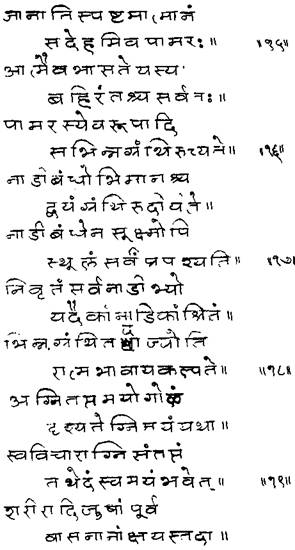 जानाति स्पष्टमात्मानं
स देहमिव पामरः॥ ॥१५॥
आत्मैव भासते यस्य
बहिरंतश्च सर्वतः॥
पामरस्येव रूपादि
स भिन्नग्रंथिरुच्यते॥ ॥१६॥
नाडीबंधोभिमानश्च
द्वयं ग्रंथिरुदीर्यते॥
नाडीबंधेन सूक्ष्मोपि
स्थूलं सर्वं प्रपश्यति॥ ॥१७॥
निवृत्तं सर्वनाडीभ्यो
यदैकां नाडिकां श्रितं॥
भिन्नग्रंथि तदा ज्योति
रात्मभावाय कल्पते॥ ॥१८॥
अग्नितप्तमयोगोळं
दृश्यतेग्निमयं यथा॥
स्वविचाराग्निसंतप्तं
तथेदं स्वमयं भवेत्॥ ॥१९॥
शरीरादिजुषां पूर्व
वासनानां क्षयस्तदा॥